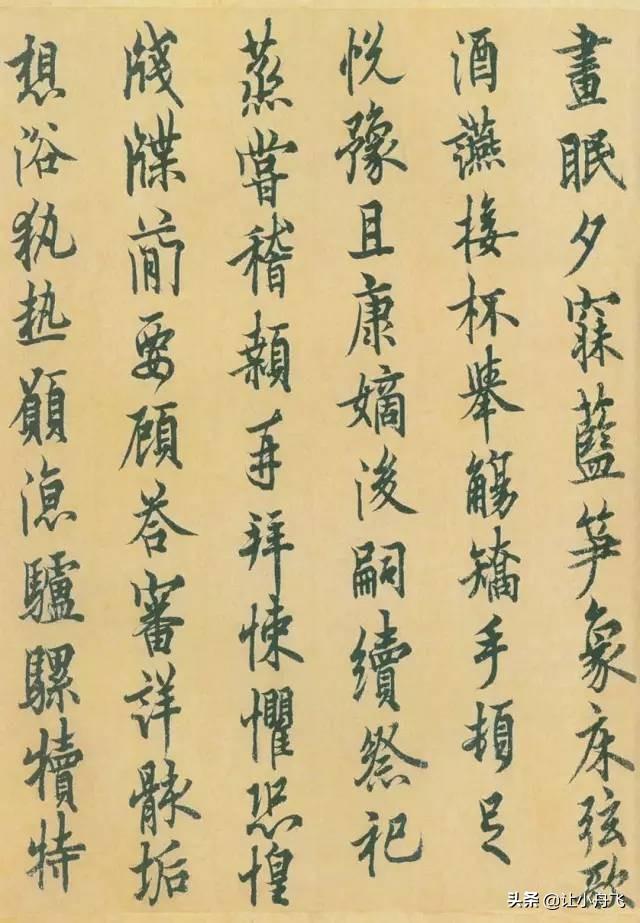 晝眠夕寐藍笋象床弦歌
酒讌接杯舉觴矯手頓足
悅豫且康嫡後嗣續祭祀
蒸嘗稽顙再拜悚懼恐惶
牋牒簡要顧答審詳骸垢
想浴執熱願涼驢騾犢特
头条 @让小舟飞